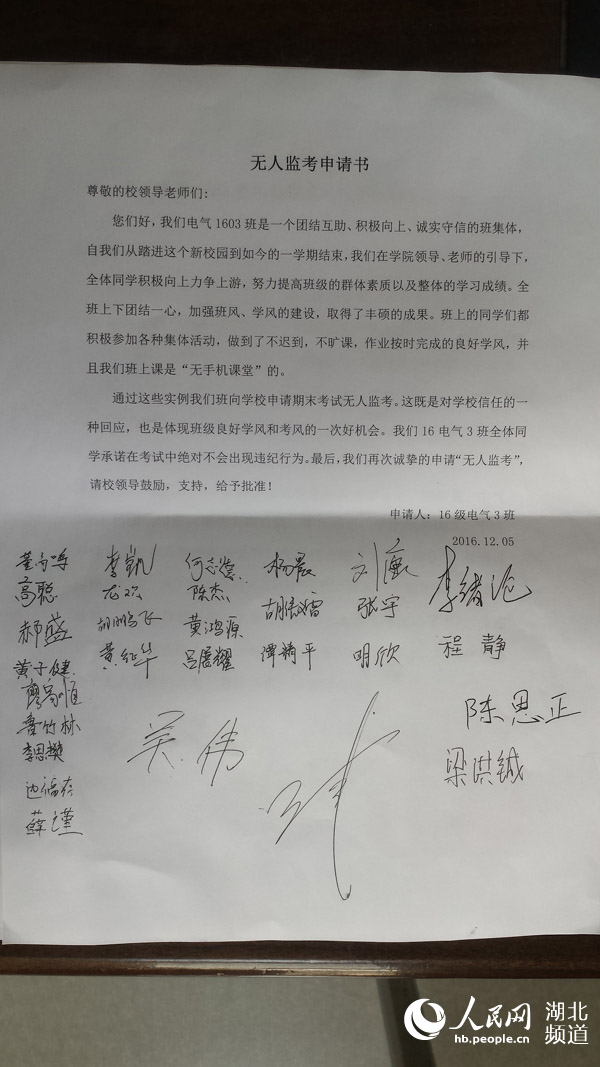 无人监考申请书
尊敬的校领导老师们：
您们好，我们电气1603班是一个团结互助、积极向上、诚实守信的班集体，
自我们从踏进这个新校园到如今的一学期结束，我们在学院领导、老师的引导下，
全体同学积极向上力争上游，努力提高班级的群体素质以及整体的学习成绩。全
班上下团结一心，加强班风、学风的建设，取得了丰硕的成果。班上的同学们都
积极参加各种集体活动，做到了不迟到，不旷课，作业按时完成的良好学风，并
且我们班上课是“无手机课堂”的。
通过这些实例我们班向学校申请期末考试无人监考。这既是对学校信任的一
种回应，也是体现班级良好学风和考风的一次好机会。我们16电气3班全体同
学承诺在考试中绝对不会出现违纪行为。最后，我们再次诚挚的申请“无人监考”，
请校领导鼓励，支持，给予批准！
申请人：16级电气3班
2016.12.05
李凯 杨晨
高聪 龙欢 陈杰 张宇 李绪沦
郝盛 胡鹏飞 黄鸿源
黄子健 黄红华 吕展耀 谭精平 明欣 程静
鲁竹林
李思樊
吴伟
陈思正
梁洪铖
薛瑾
人民网 湖北频道
hb.people.cn